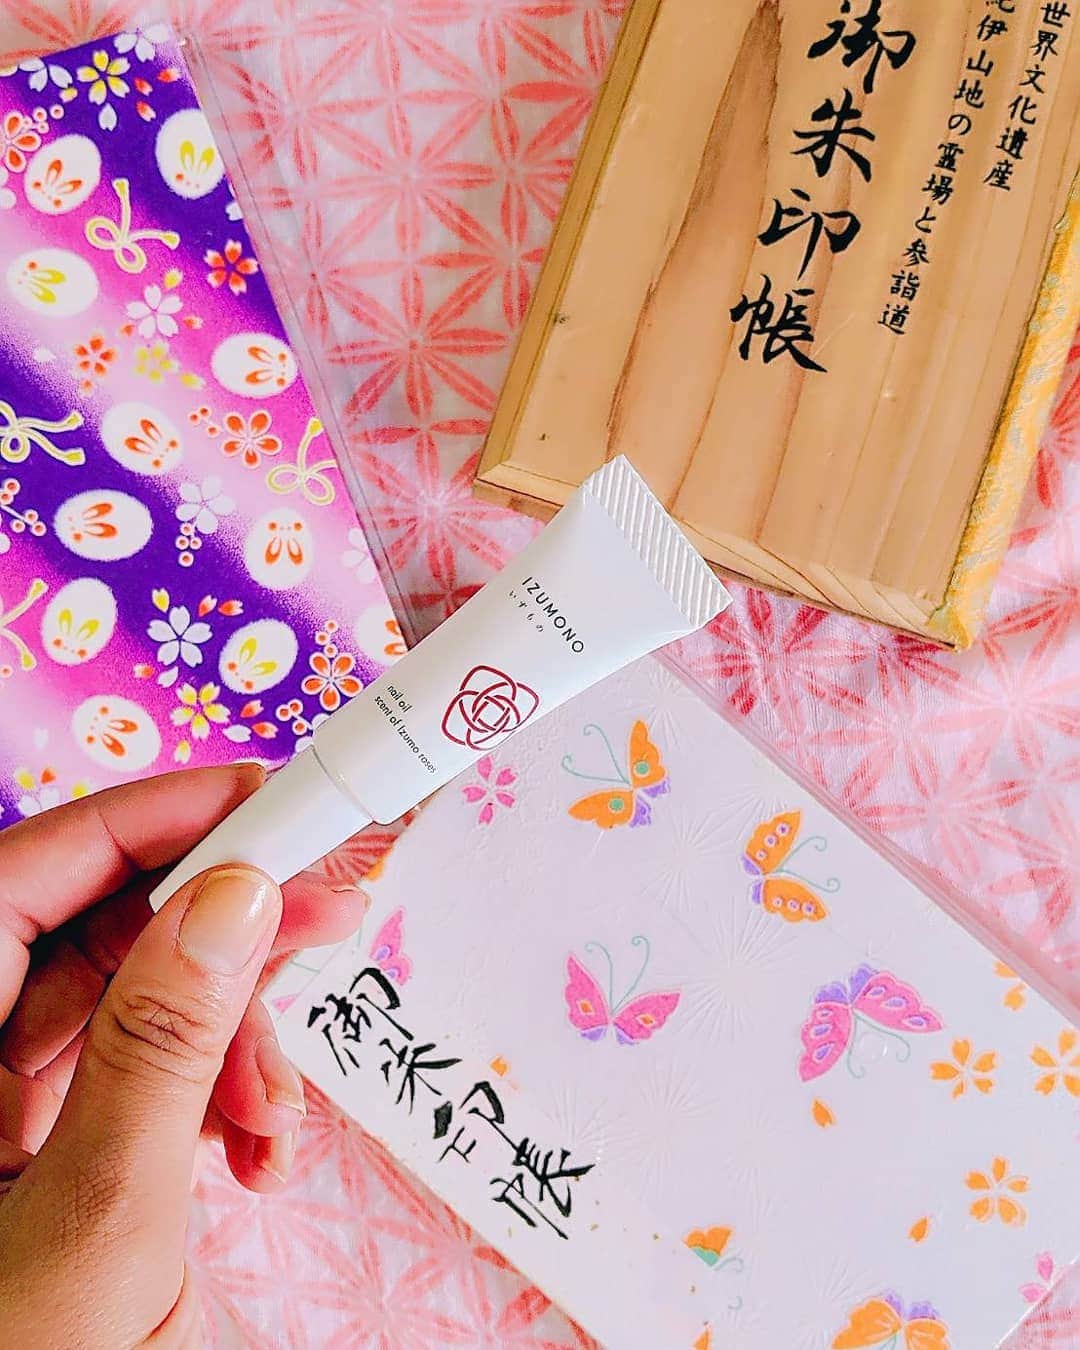 世界文化遺産
紀伊山地の霊場と参詣道
御朱印帳
IZUMONO
いずもの
nail oil
scent of Izumo roses
御朱印帳